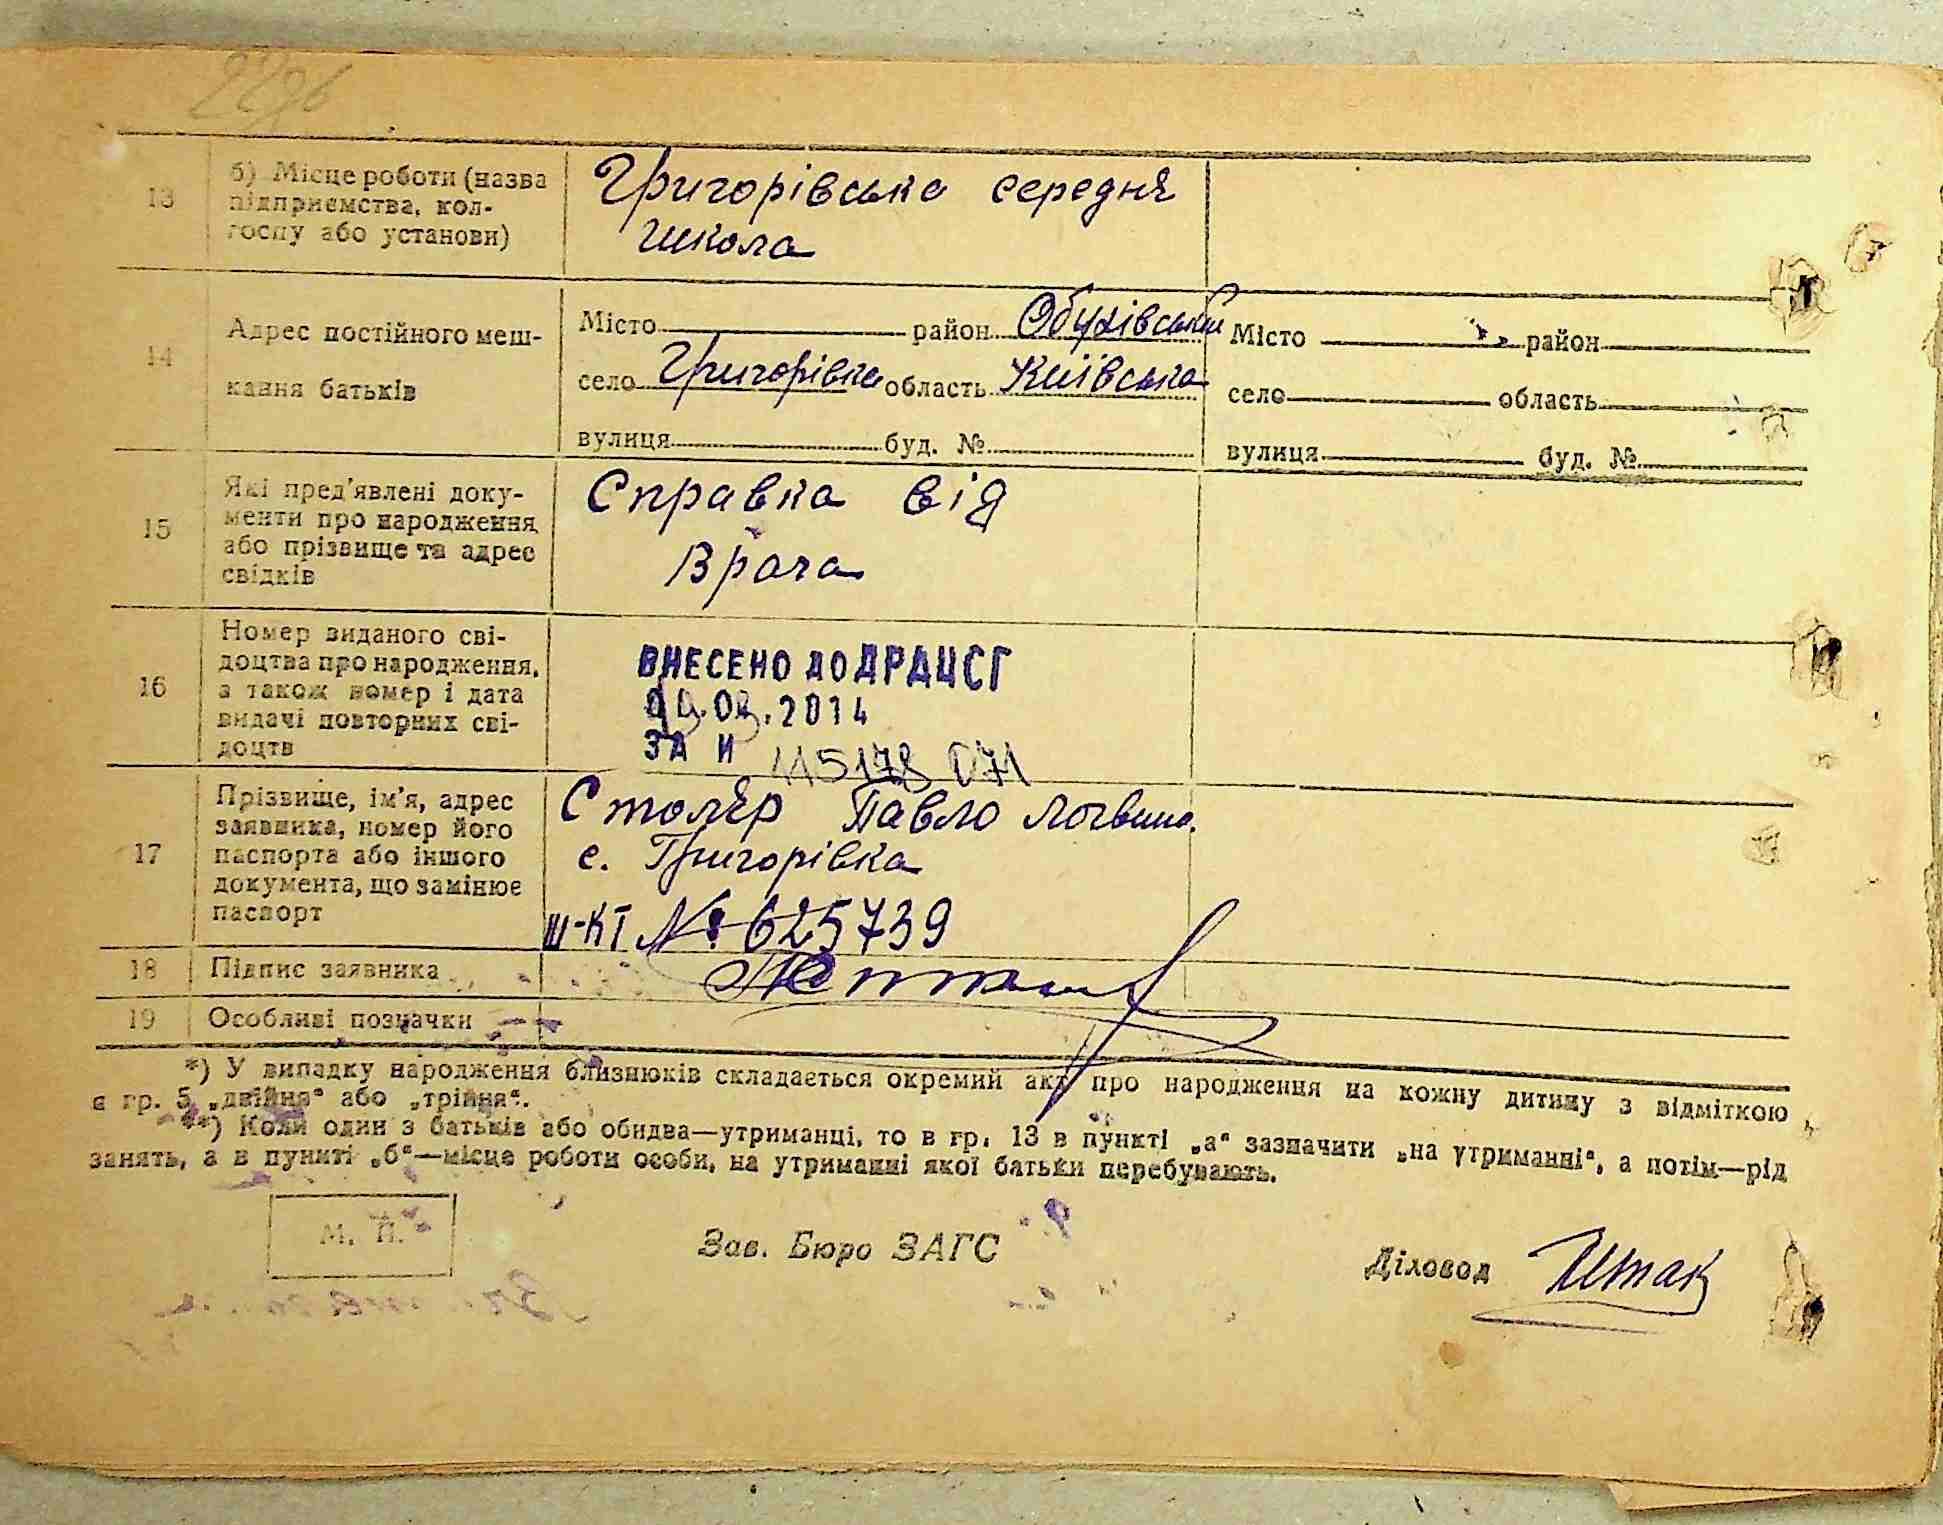 13 б) Місце роботи (назва
підприємства, кол-
госпу або установи)
Григорівська середня
школа
14 Адрес постійного меш-
кання батьків
Місто район Обухівський
село Григорівка область Київська
вулиця буд. №
Місто район
село область
вулиця буд. №
15 Які пред'явлені доку-
менти про народження
або прізвище та адрес
свідків
Справка від
Врача
16 Номер виданого сві-
доцтва про народження,
а також номер і дата
видачі повторних сві-
доцтв
ВНЕСЕНО ДО ДРАЦСГ
2014
ЗА И 115178 071
17 Прізвище, ім'я, адрес
заявника, номер його
паспорта або іншого
документа, що замінює
паспорт
Столяр Павло Логвин.
с. Григорівка
Ш-КТ № 625739
18 Підпис заявника
19 Особливі позначки
*) У випадку народження близнюків складається окремий акт про народження на кожну дитину з відміткою
в гр. 5 „двійня“ або „трійня“.
**) Коли один з батьків або обидва—утриманці, то в гр. 13 в пункті „а“ зазначити „на утриманні“, а потім—рід
занять, а в пункті „б“—місце роботи особи, на утриманні якої батьки перебувають.
М. П.
Зав. Бюро ЗАГС
Діловод